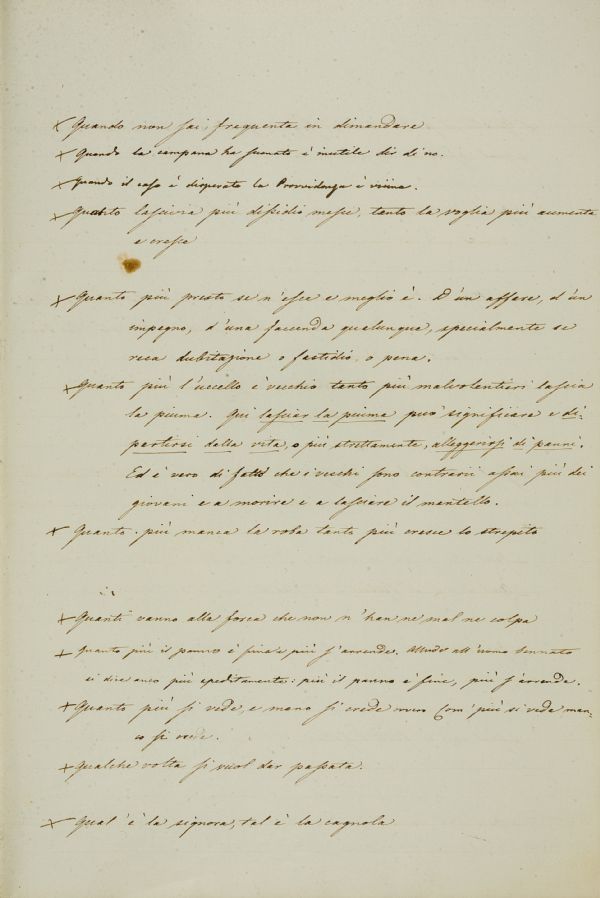 × Quando non sai, frequenta in dimandare
× Quando la campana ha suonato è inutile dir di no.
× Quando il caso è disperato la Provvidenza è vicina.
× Quanto lascivia più dissidio mesce, tanto la voglia più aumenta
e cresce
× Quanto più presto se n'esce e meglio è. D'un affare, d'un
impegno, d'una faccenda qualunque, specialmente se
reca dubitazione o fastidio o pena.
× Quanto più l'uccello è vecchio tanto più malvolentieri lascia
la piuma. Qui lasciar la piuma può significare e di-
partirsi dalla vita, o più strettamente, alleggerirsi di panni.
Ed è vero di fatto che i vecchi sono contrarii assai più dei
giovani e a morire e a lasciare il mantello.
× Quanto più manca la roba tanto più cresce lo strepito
× Quanti vanno alla forca che non n'han ne mal ne colpa
× Quanto più il panno è fine e più s'arrende. Allude all'uomo sennato
si dice anco più speditamente: più il panno è fine, più s'arrende.
× Quanto più si vede, e meno si crede ovvero Com' più si vede man-
co si crede.
× Qualche volta si vuol dar passata.
× Qual'è la signora, tal è la cagnola